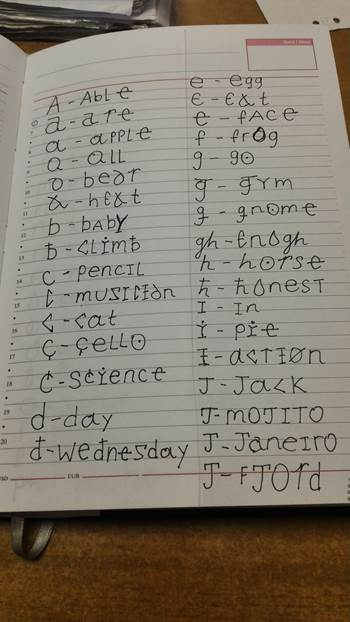 A - Able
a - are
a - apple
a - all
a - bear
a - heat
b - baby
ƀ - climƀ
c - pencil
ċ - musician
c - cat
ç - çello
c - science
d - day
đ - weđnesday
e - egg
e - eat
e - face
f - frog
g - go
g - gym
g - gnome
gh - enogh
h - horse
ħ - ħonest
I - In
i - pie
I - action
J - Jack
J - moJito
J - Janeiro
J - fJord
12
13
14
15
16
17
18
19
20
EUR